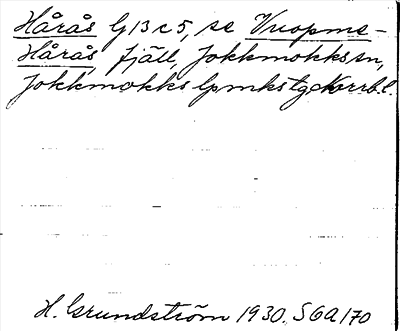 Hårås G 13 c 5, se Vuopme-
Hårås, fjäll, Jokkmokks sn,
Jokkmokks lpmks tg, Norrb. l.
H. Grundström 1930. S 6a 170